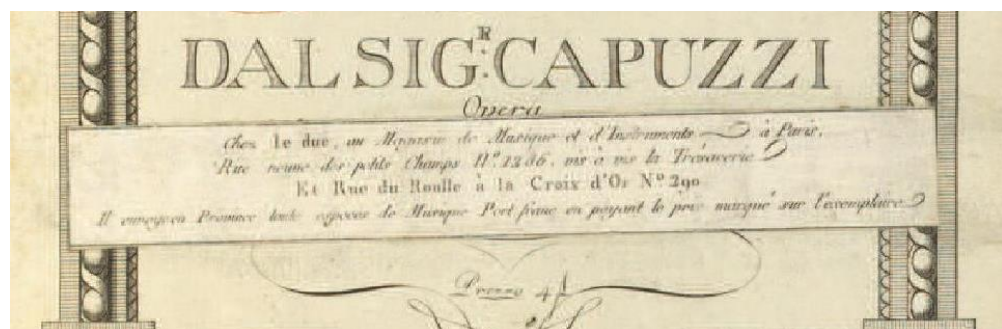 DAL SIG.R CAPUZZI
Opera
Chez le duc, au Magasin de Musique et d'Instruments à Paris.
Rue neuve des petits Champs N.º 1286, vis à vis la Trésorerie
Et Rue du Roulle à la Croix d'Or Nº 290
Il envoye en Province toute espèces de Musique Port franc en payant le prix marqué sur l'exemplaire
Prezzo 4